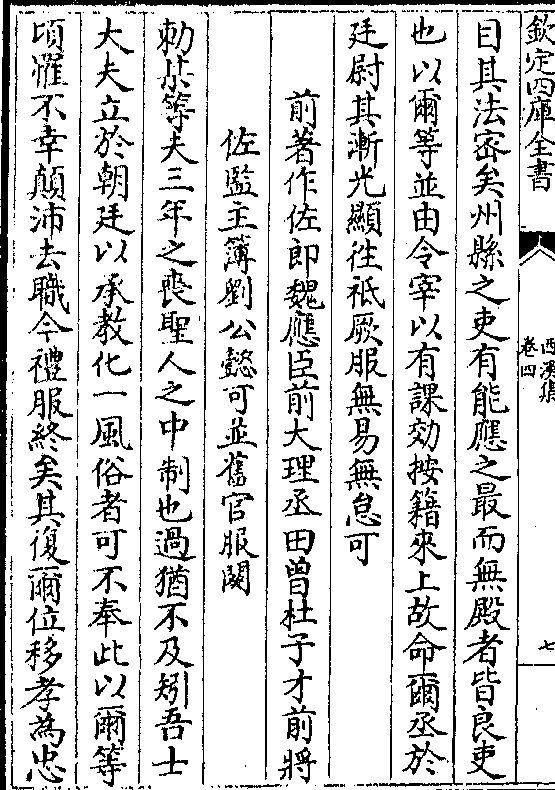 欽定四庫全書
西溪集
卷四
七
目其法密矣州縣之吏有能應之最而無殿者皆良吏
也以爾等並由令宰以有課効按籍來上故命爾丞於
廷尉其漸光顯徃祇厥服無易無怠可
前著作佐郎魏應臣前大理丞田曾杜子才前將
佐監主簿劉公懿可並舊官服闋
勑某等夫三年之喪聖人之中制也過猶不及矧吾士
大夫立於朝廷以承教化一風俗者可不奉此以爾等
頃罹不幸顛沛去職今禮服終矣其復爾位移孝為忠